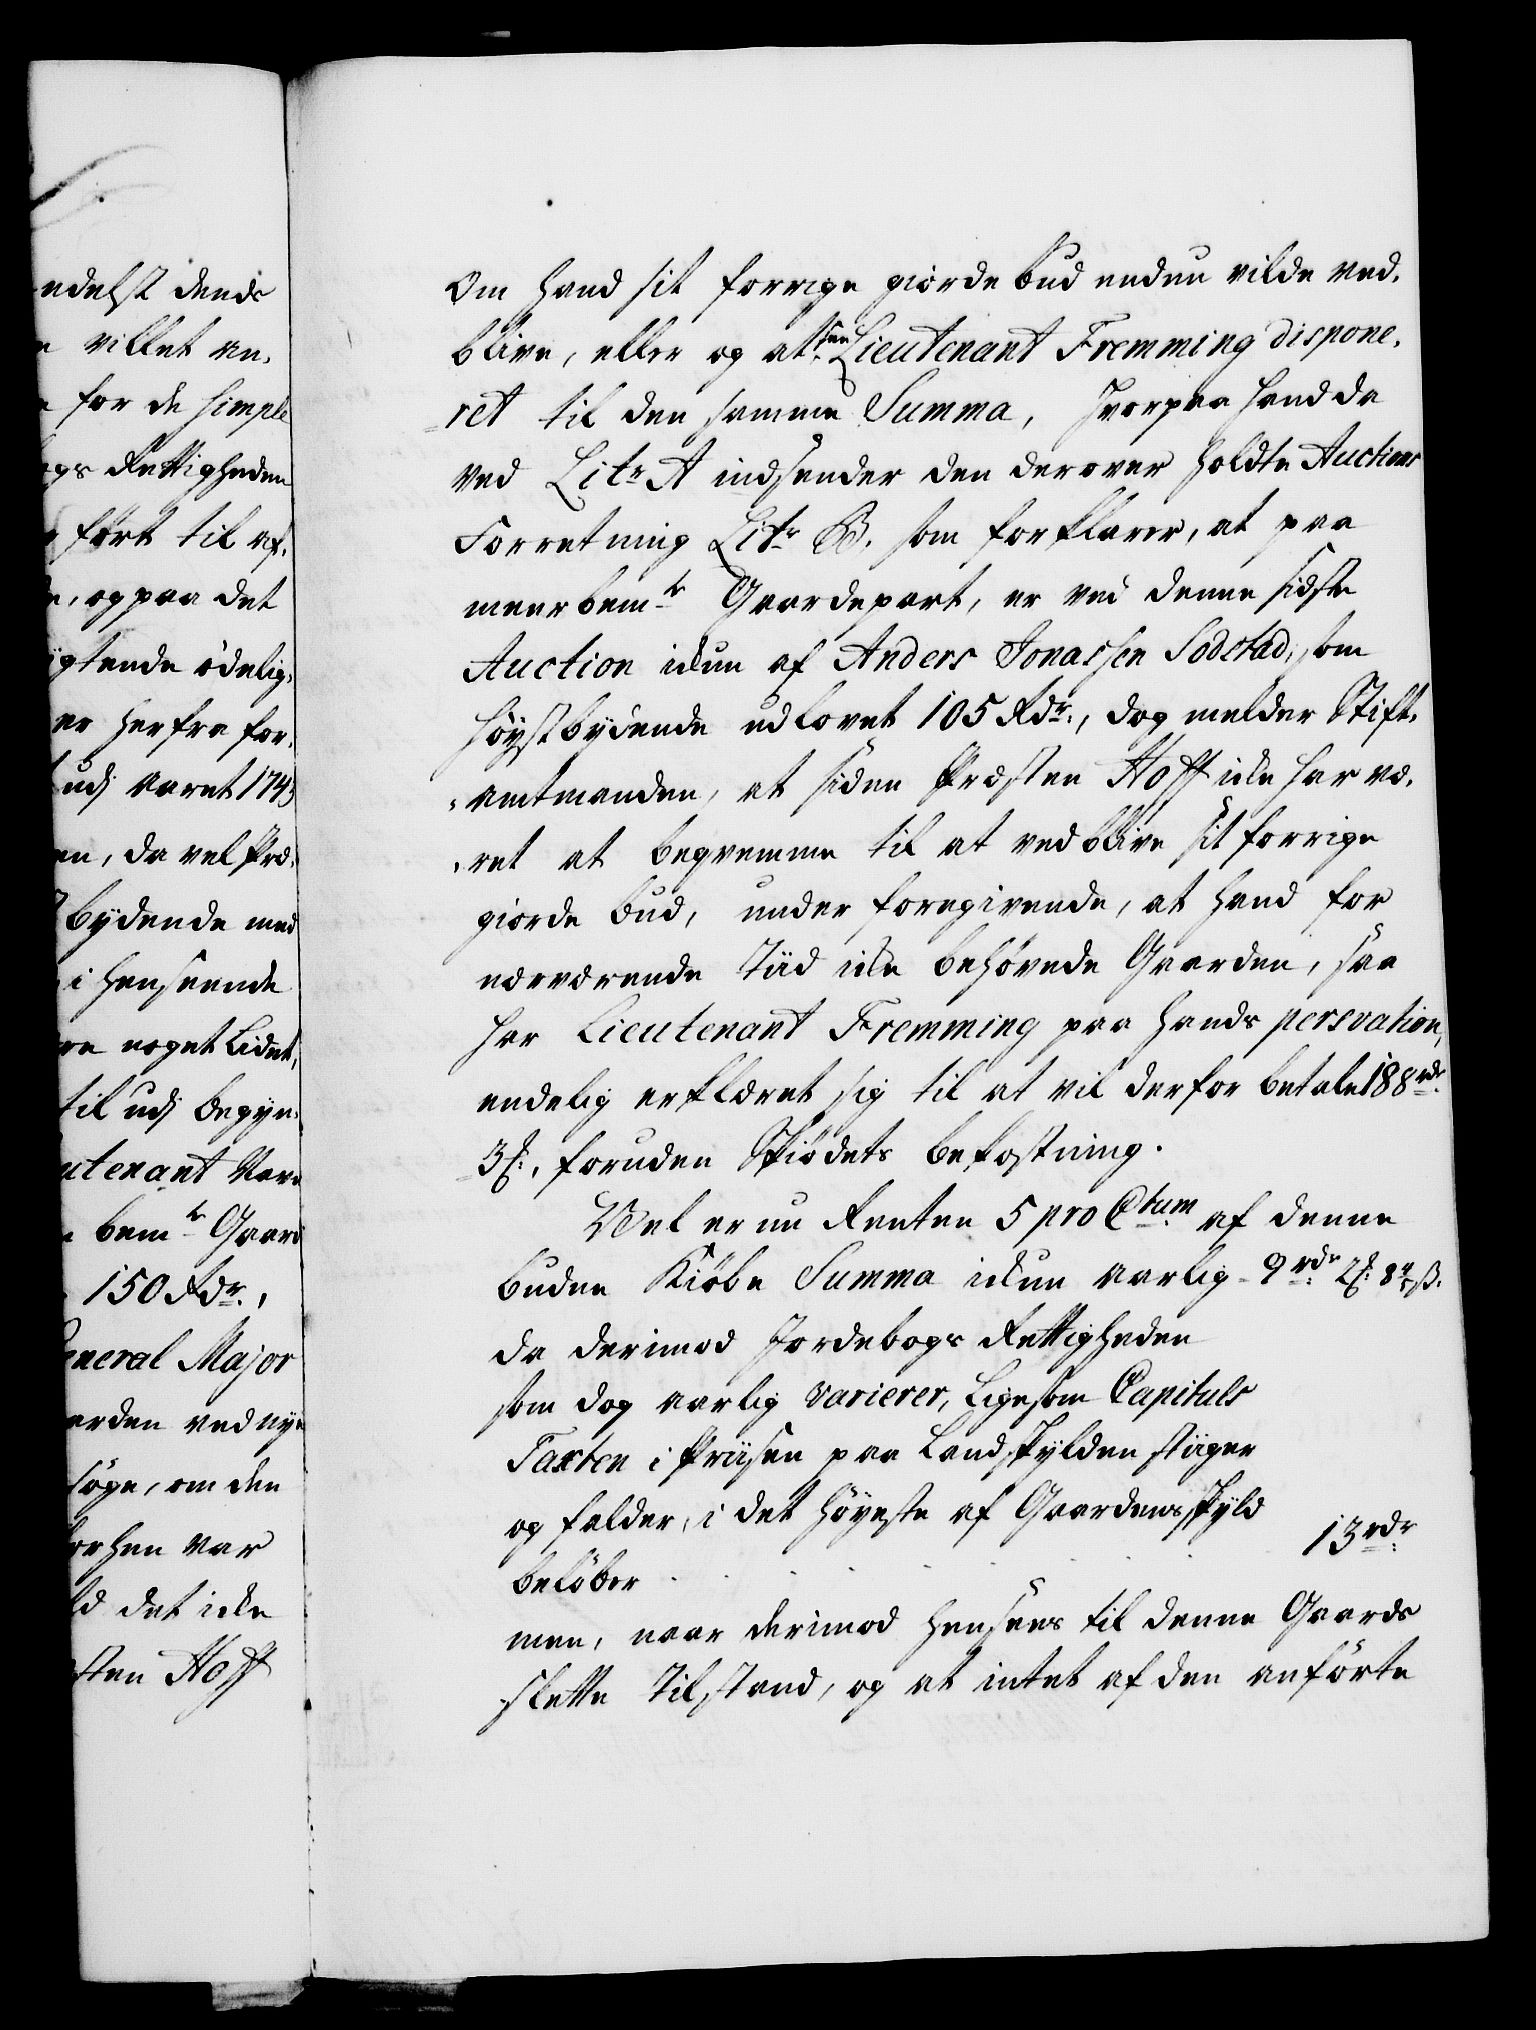 edelst dends
villet an¬
for de simple
ogs Rettigheden
ført til af¬
e, og paa det
ygtende ødelig¬
er herfra for¬
udj Aaret 1743
en, da vel Præ¬
bydende med
i henseende
re noget Lidet,
til udj begyn¬
utenant Var
bemte Gaard
150 Rdr.,
General Major
arden ved nye
søge, om den
forhen var
ld det icke
sten Hoff
Om hand sit forrige giorde bud endnu vilde ved¬
blive, eller og at Lieutenant Fremming dispone¬
ret til den samme Summa, hvorpaa hand da
ved Litr A indsender den derover holdte Auctions
Forretning Litr B. som forklarer, at paa
meerbemte Gaardepart, er ved denne sidste
Auction ickun af Anders Jonassen Sodstad, som
høystbydende udlovet 105 Rdr., dog melder Stift¬
amtmanden, at siden Præsten Hoff icke har væ¬
ret at beqvemme til at vedblive sit forrige
giorde bud, under foregivende, at hand for
nærværende Tiid icke behøvede Gaarden, saa
har Lieutenant Fremming paa hands persvation,
endelig erklæret sig til at vil derfor betale 188 rdr.
3 ƒ., foruden Skiødets bekostning.
Vel er nu Renten 5 pro Ctum af denne
budne Kiøbe Summa ickun aarlig 9 rdr 2 ƒ 8 ß.
da derimod Jordebogs Rettigheden
som dog aarlig varierer, ligesom Capituls
Taxten i Priisen paa Landskylden stiiger
og falder, i det høyeste af Gaardens skyld
beløber . . . . . . 13 rdr
men, naar derimod hensees til denne Gaards
slette Tilstand, og at intet af den anførte